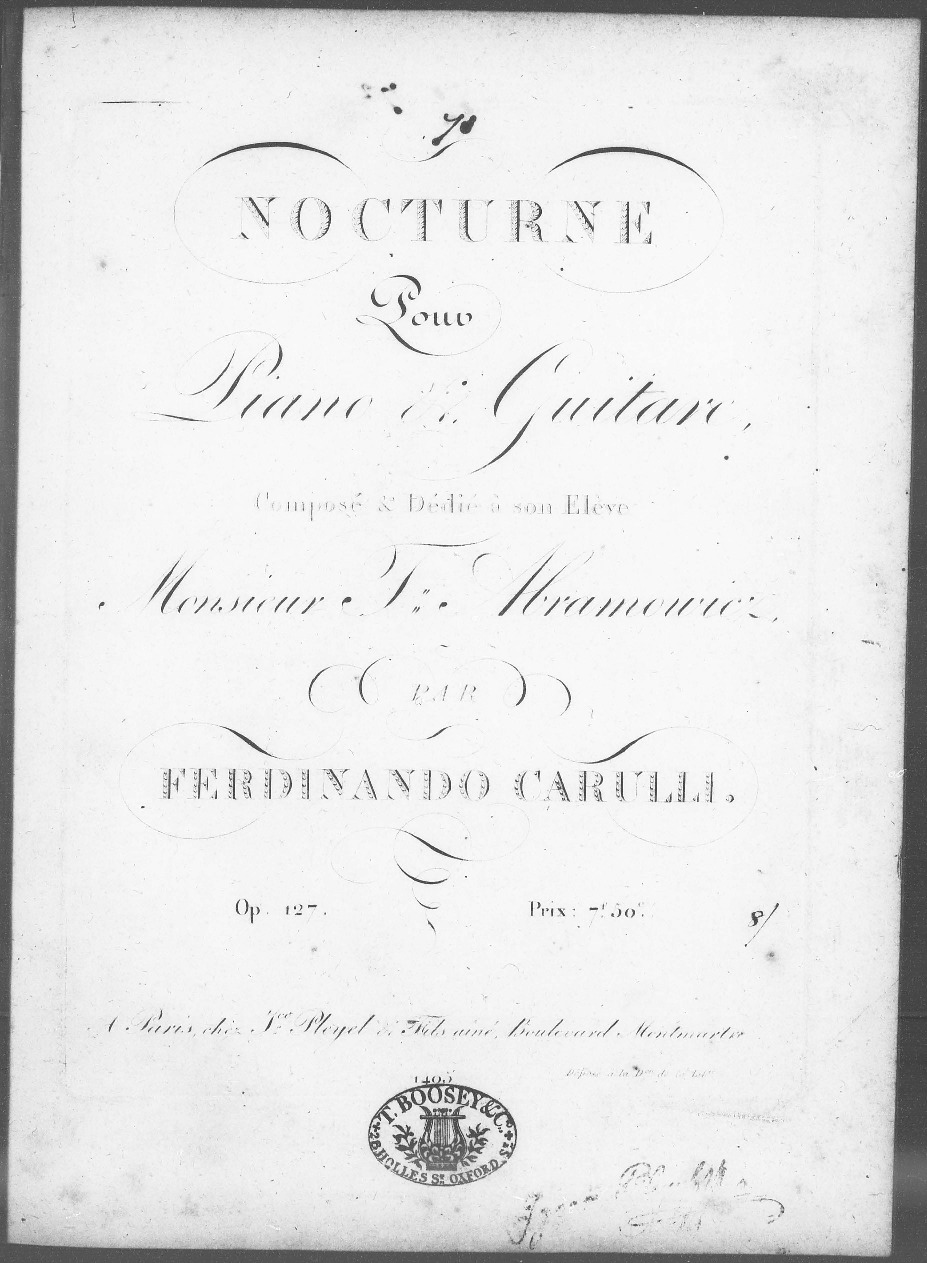 NOCTURNE
Pour
Piano & Guitare,
Composé & Dédié à son Elève
Monsieur F. Abramowicz,
PAR
FERDINANDO CARULLI.
Op. 127. Prix: 7f. 50c. 8/
A Paris, chez Ice. Pleyel & Fils ainé, Boulevard Montmartre
Déposé à la Don. de la Libie.
1405
T. BOOSEY & Co.
28 HOLLES St. OXFORD St.